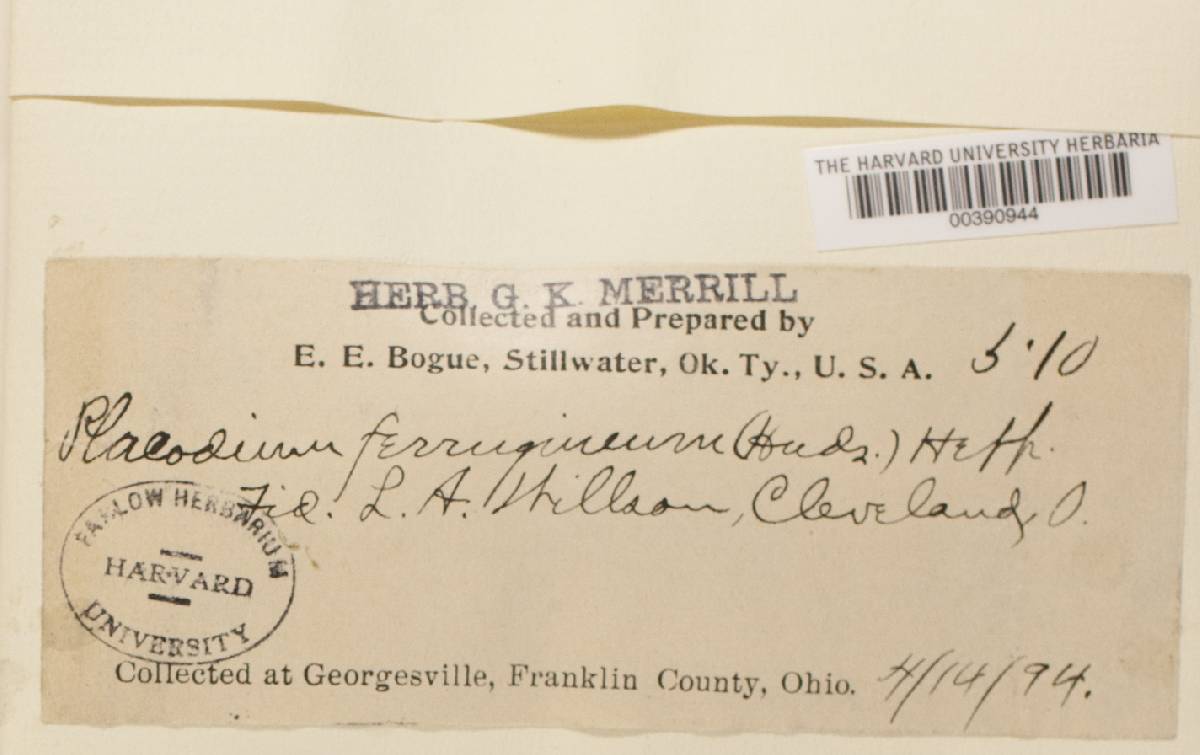 THE HARVARD UNIVERSITY HERBARIA
00390944
HERB. G. K. MERRILL
Collected and Prepared by
E. E. Bogue, Stillwater, Ok. Ty., U. S. A.
Placodium ferrugineum (Huds.) Hepp.
Fid. L. A. Willson, Cleveland, O.
FARLOW HERBARIUM
HARVARD
UNIVERSITY
Collected at Georgesville, Franklin County, Ohio. 4/14/94.